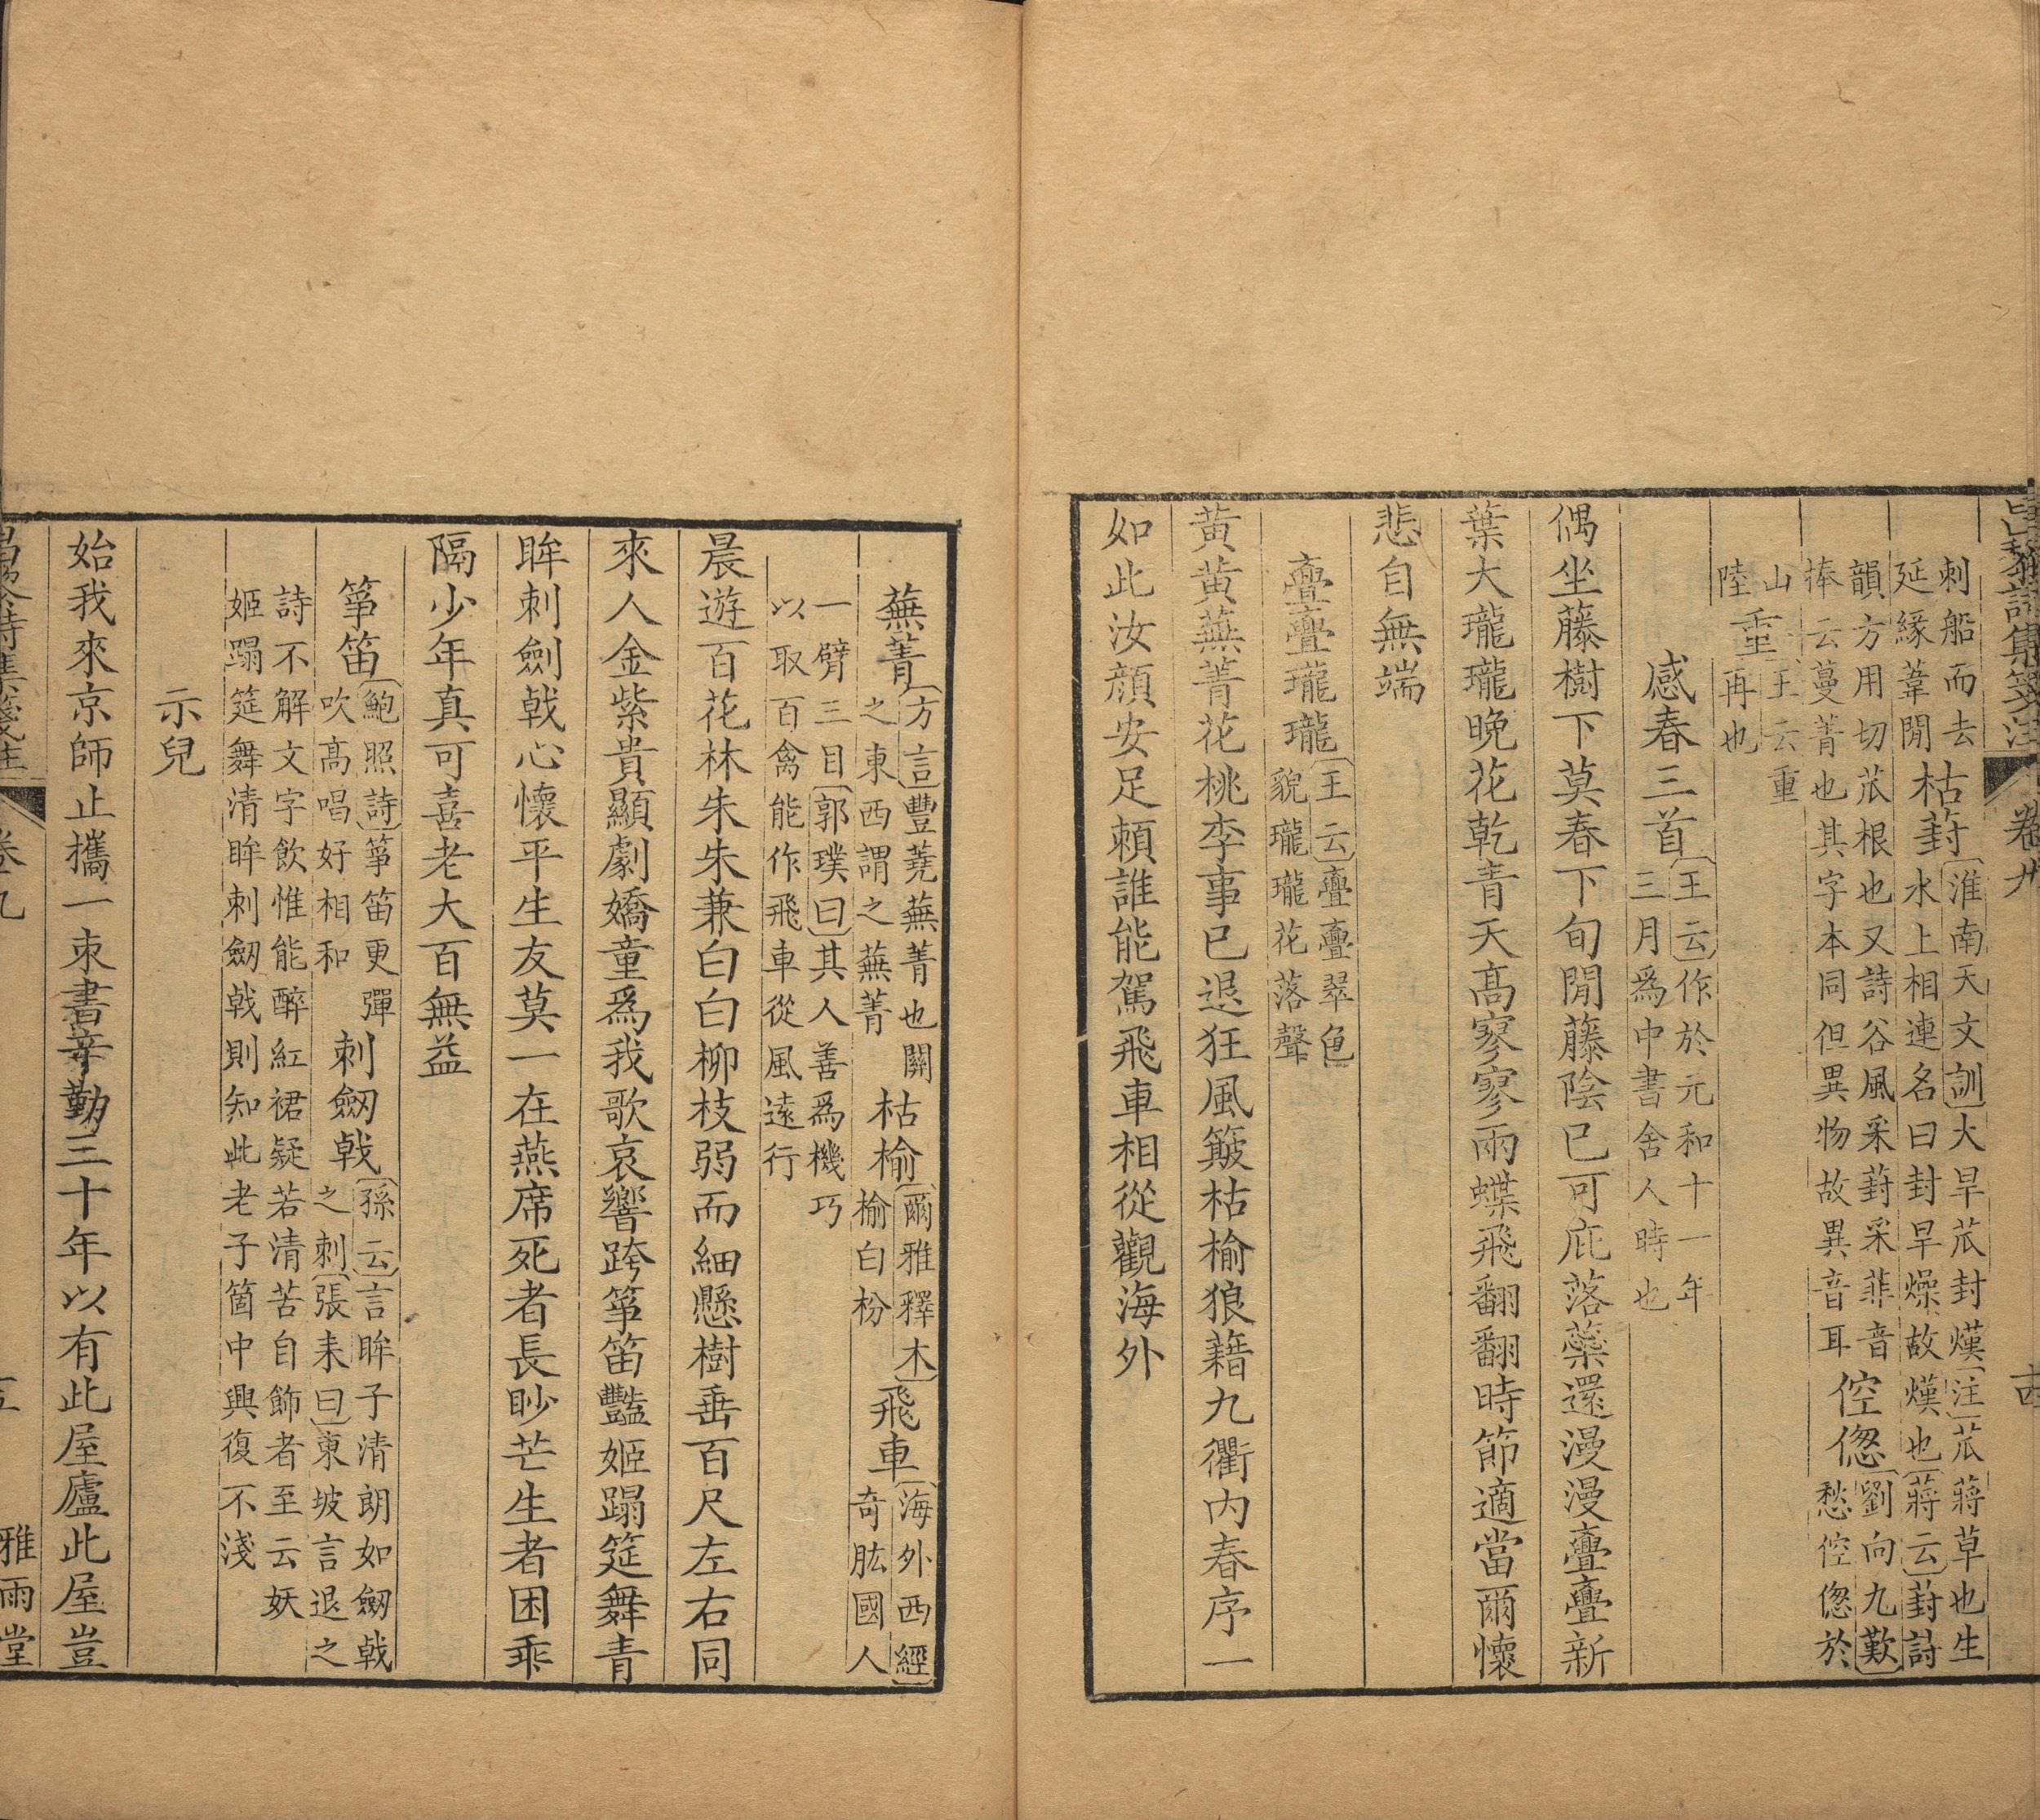 昌黎詩集箋注 卷九
刺船而去
延緣葦閒
枯葑
淮南天文訓大旱苽封熯注苽蔣草也生
水上相連名曰封旱燥故熯也蔣云葑詩
韻方用切苽根也又詩谷風采葑采菲音
捧云蔓菁也其字本同但異物故異音耳
倥偬
劉向九歎
愁倥偬於
山
陸
重
王云重
再也
感春三首
王云作於元和十一年
三月爲中書舍人時也
偶坐藤樹下莫春下旬閒藤陰已可庇落蘂還漫漫亹亹新
葉大瓏瓏晚花乾青天高寥寥兩蝶飛翻翻時節適當爾懷
悲自無端
亹亹瓏瓏
王云亹亹翠色
貌瓏瓏花落聲
黄黄蕪菁花桃李事已退狂風簸枯榆狼藉九衢内春序一
如此汝顔安足頼誰能駕飛車相從觀海外
蕪菁
方言豐蕘蕪菁也關
之東西謂之蕪菁
枯榆
爾雅釋木
榆白枌
飛車
海外西經
奇肱國人
一臂三目郭璞曰其人善爲機巧
以取百禽能作飛車從風遠行
晨遊百花林朱朱兼白白柳枝弱而細懸樹垂百尺左右同
來人金紫貴顯劇嬌童爲我歌哀響跨箏笛豔姬蹋筵舞青
眸刺劍戟心懷平生友莫一在燕席死者長眇芒生者困乖
隔少年真可喜老大百無益
箏笛
鮑照詩箏笛更彈
吹高唱好相和
刺劒戟
孫云言眸子清朗如劒戟
之刺張耒曰東坡言退之
詩不解文字飲惟能醉紅裙疑若清苦自飾者至云妖
姬蹋筵舞清眸刺劒戟則知此老子箇中興復不淺
示兒
始我來京師止攜一束書辛勤三十年以有此屋廬此屋豈
昌黎詩集箋注 卷九 雅雨堂